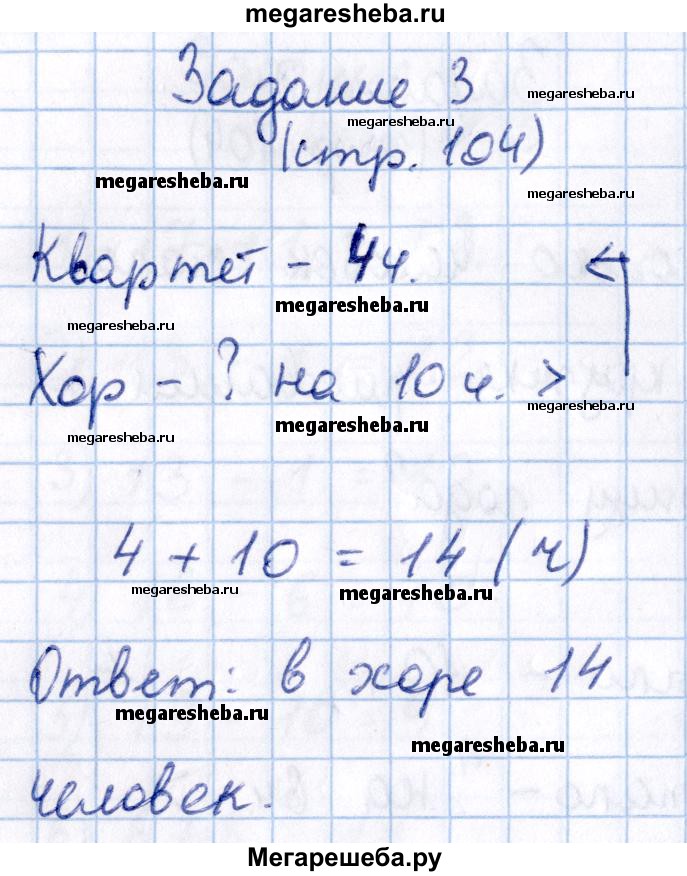 megaresheba.ru
Задание 3
megaresheba.ru
megaresheba.ru
(стр. 104)
megaresheba.ru
megaresheba.ru
Квартет - 4ч.
megaresheba.ru
megaresheba.ru
Хор - ? на 10 ч. >
megaresheba.ru
megaresheba.ru
megaresheba.ru
4 + 10 = 14 (ч)
megaresheba.ru
megaresheba.ru
Ответ: в хоре 14
megaresheba.ru
megaresheba.ru
человек.
Мегарешеба.ру